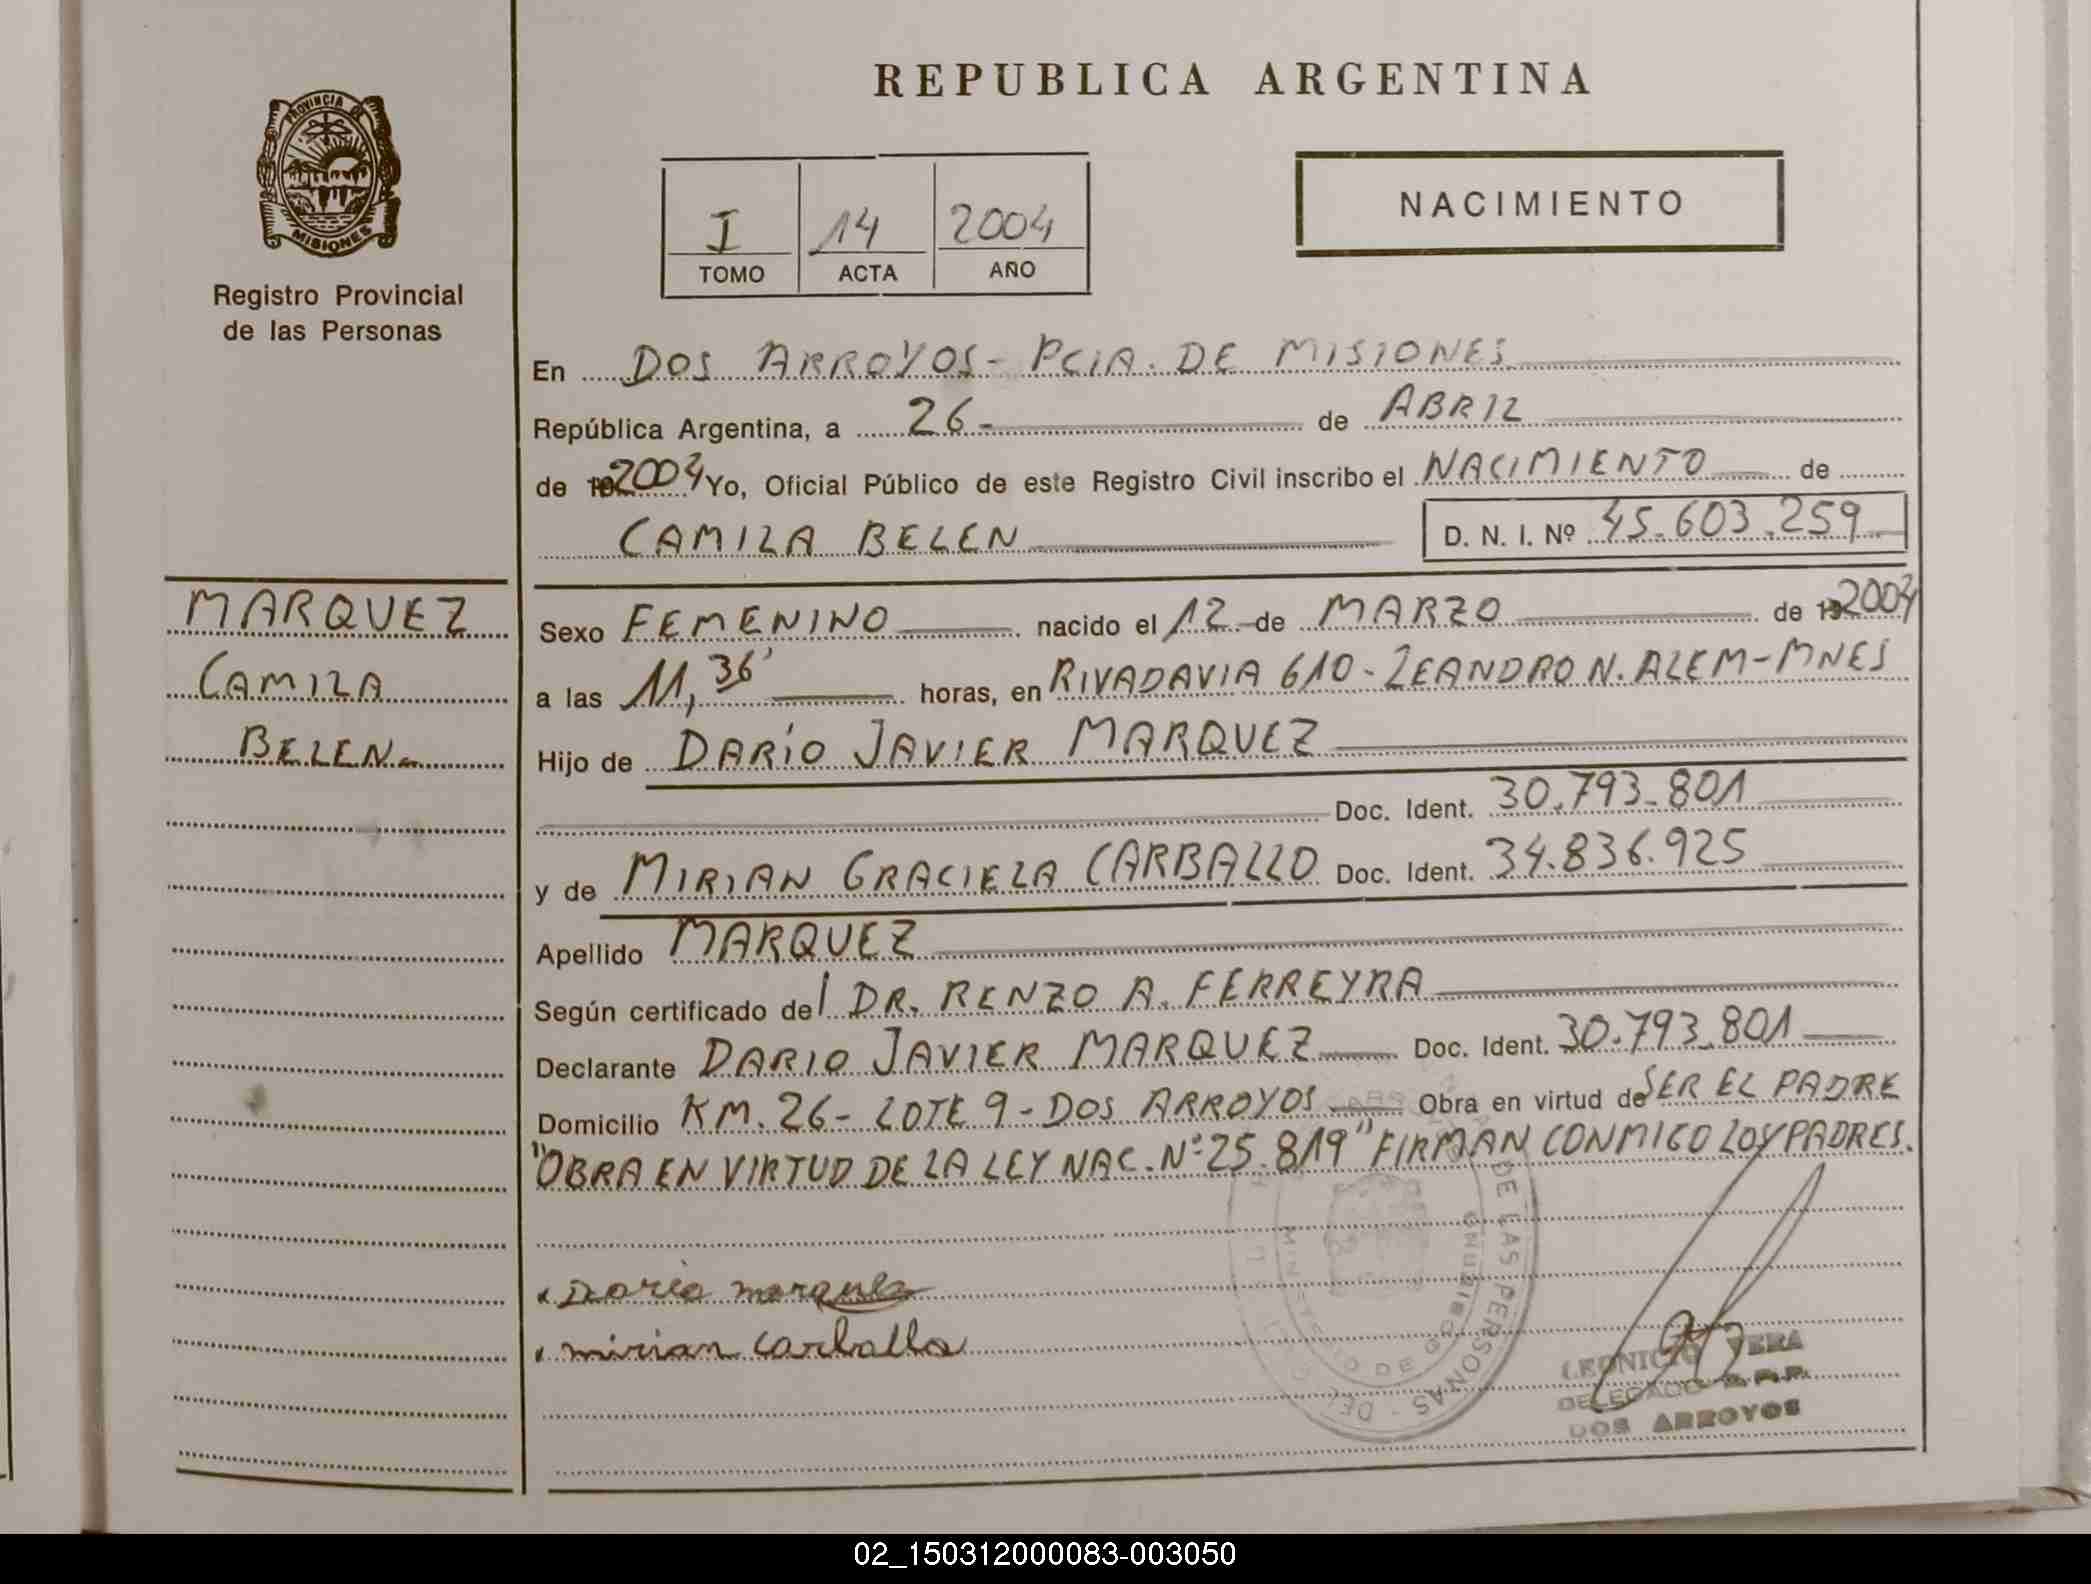 REPUBLICA ARGENTINA
PROVINCIA DE
MISIONES
Registro Provincial
de las Personas
I 14 2004
TOMO ACTA AÑO
NACIMIENTO
En DOS ARROYOS- PCIA. DE MISIONES
República Argentina, a 26- de ABRIL
de 2004 Yo, Oficial Público de este Registro Civil inscribo el NACIMIENTO de
CAMILA BELEN D. N. I. Nº 45.603.259
MARQUEZ
CAMILA
BELEN.-
Sexo FEMENINO nacido el 12 de MARZO de 2004
a las 11,36' horas, en RIVADAVIA 610-LEANDRO N. ALEM-MNES
Hijo de DARÍO JAVIER MARQUEZ
Doc. Ident. 30.793.801
y de MIRIAN GRACIELA CARBALLO Doc. Ident. 34.836.925
Apellido MARQUEZ
Según certificado del DR. RENZO A. FERREYRA
Declarante DARIO JAVIER MARQUEZ Doc. Ident. 30.793.801
Domicilio KM. 26- LOTE 9-DOS ARROYOS Obra en virtud de SER EL PADRE
"OBRA EN VIRTUD DE LA LEY NAC. Nº 25.819" FIRMAN CONMIGO LOS PADRES.
Dario marquez
mirian carballo
DE LAS PERSONAS - DEL
MINISTERIO DE GOBIERNO
LEONICIO VERA
DELEGADO R.P.P.
DOS ARROYOS
02_150312000083-003050